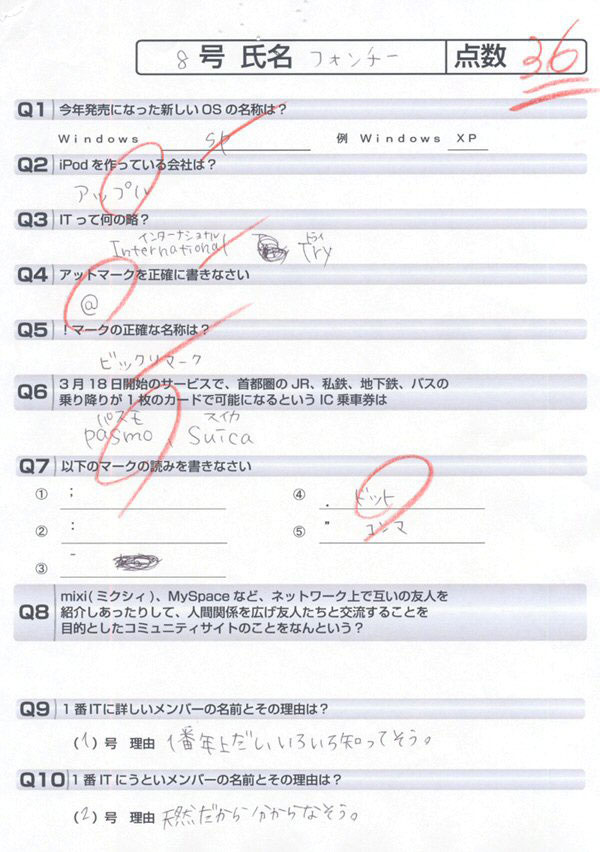 8号 氏名 フォンチー 点数 36
Q1 今年発売になった新しいOSの名称は?
Windows sp 例 Windows XP
Q2 iPodを作っている会社は?
アップル
Q3 ITって何の略?
インターナショナル トライ
International Try
Q4 アットマークを正確に書きなさい
@
Q5 !マークの正確な名称は?
ビックリマーク
Q6 3月18日開始のサービスで、首都圏のJR、私鉄、地下鉄、バスの
乗り降りが1枚のカードで可能になるというIC乗車券は
パスモ スイカ
pasmo, Suica
Q7 以下のマークの読みを書きなさい
① ;
④ . ドット
② :
⑤ " コンマ
③ ‾
Q8 mixi(ミクシィ)、MySpaceなど、ネットワーク上で互いの友人を
紹介しあったりして、人間関係を広げ友人たちと交流することを
目的としたコミュニティサイトのことをなんという?
Q9 1番ITに詳しいメンバーの名前とその理由は?
(1)号 理由 1番年上だしいろいろ知ってそう。
Q10 1番ITにうといメンバーの名前とその理由は?
(2)号 理由 天然だから分からなそう。